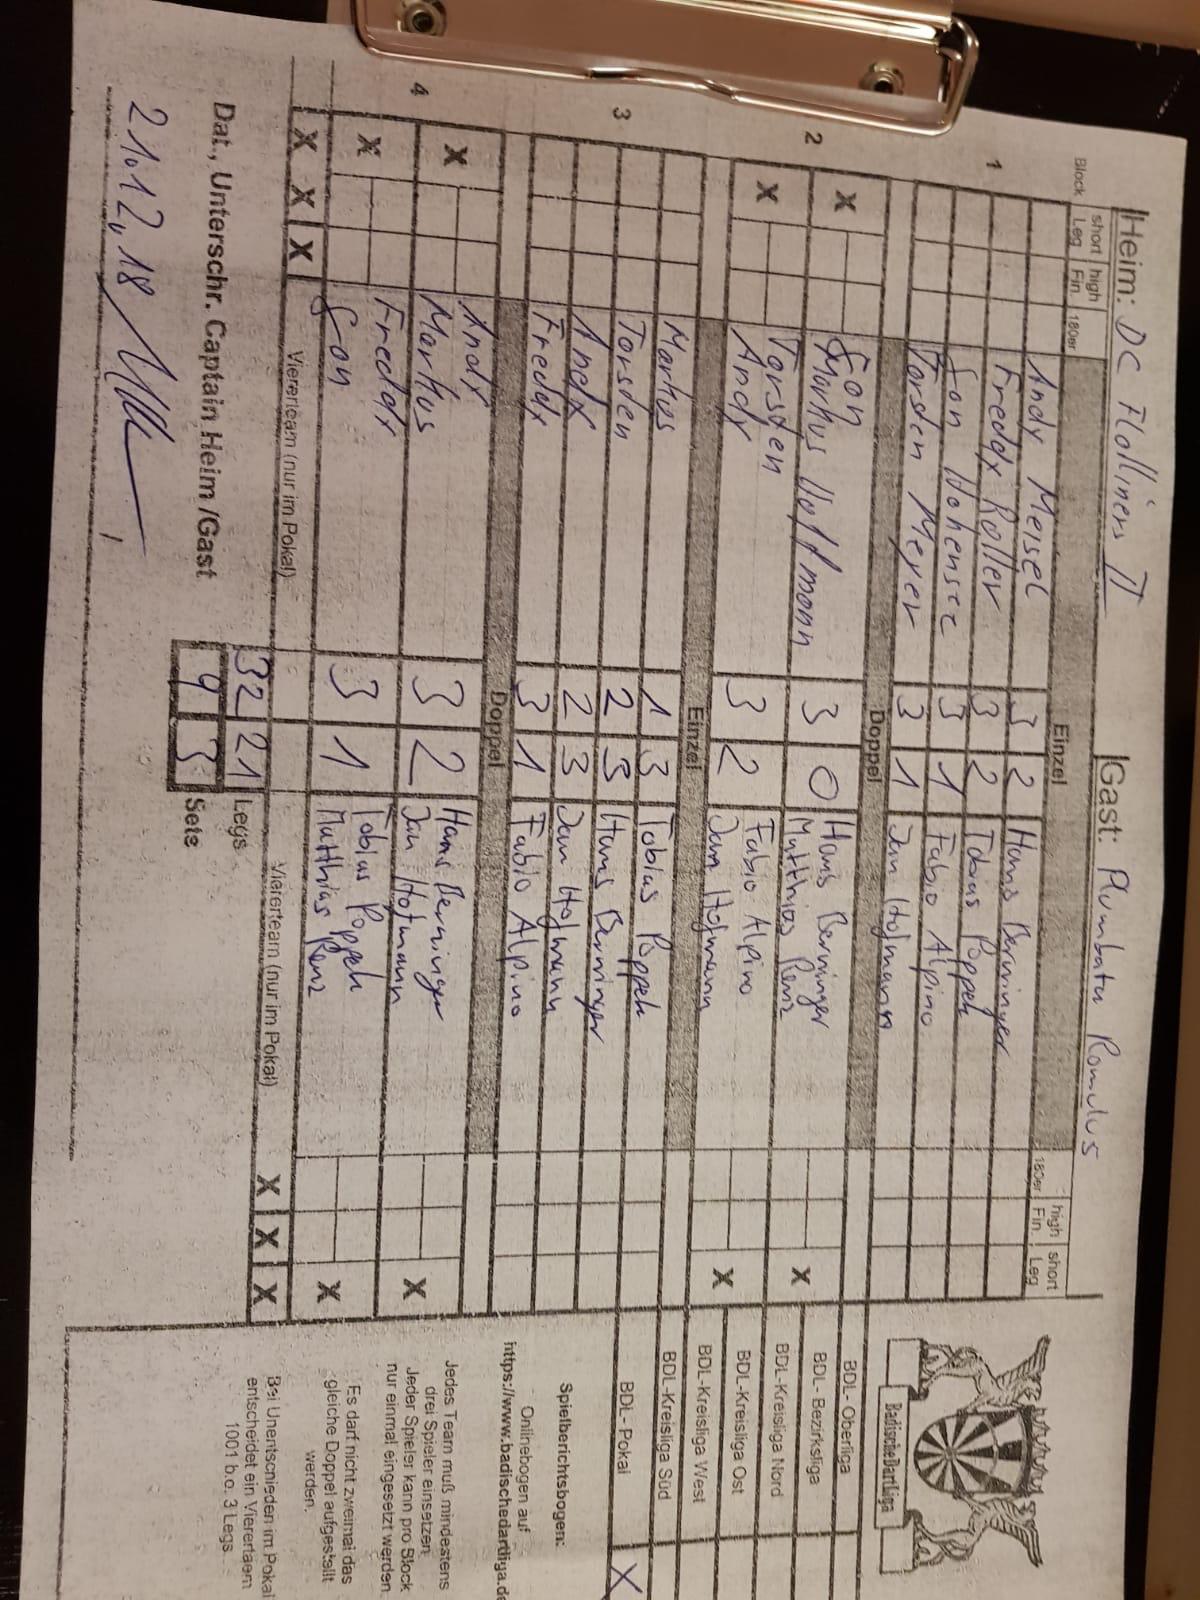 Heim: DC Flolliners II Gast: Plumbata Romulus
Block short Leg high Fin. 180er Einzel 180er high Fin. short Leg
1 Andy Meisel 3 2 Hans Berninger
Freddy Roller 3 2 Tobias Poppeh
Jon Hohensee 3 1 Fabio Alpino
Torsten Meyer 3 1 Jan Hofmann
Doppel
2 X Jon 3 0 Hans Berninger X
Markus Hoffmann Matthias Renz
X Torsten 3 2 Fabio Alpino X
Andy Jan Hofmann
Einzel
3 Markus 1 3 Tobias Poppeh
Torsten 2 3 Hans Berninger
Andy 2 3 Jan Hofmann
Freddy 3 1 Fabio Alpino
Doppel
4 X Andy 3 2 Hans Berninger X
Markus Jan Hofmann
X Freddy 3 1 Tobias Poppeh X
Jon Matthias Renz
X X X Viererteam (nur im Pokal) Viererteam (nur im Pokal) X X X
32 21 Legs
9 3 Sets
Dat., Unterschr. Captain Heim /Gast
21.12.18
Badische Dart Liga
BDL- Oberliga
BDL- Bezirksliga
BDL-Kreisliga Nord
BDL-Kreisliga Ost
BDL-Kreisliga West
BDL-Kreisliga Süd
BDL- Pokal X
Spielberichtsbogen:
Onlinebogen auf
https://www.badischedartliga.de
Jedes Team muß mindestens
drei Spieler einsetzen
Jeder Spieler kann pro Block
nur einmal eingesetzt werden.
Es darf nicht zweimal das
gleiche Doppel aufgestellt
werden.
Bei Unentschieden im Pokal
entscheidet ein Viererteam
1001 b.o. 3 Legs.